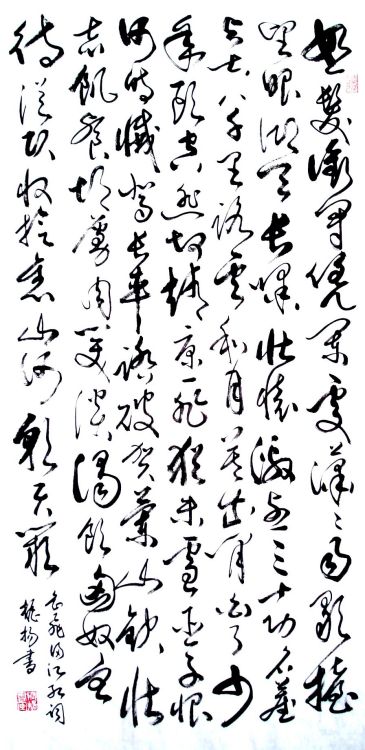 怒髮衝冠憑闌處瀟々雨歇擡
望眼仰天長嘯壯懷激烈三十功名塵
與土八千里路雲和月莫等閒白了少
年頭空悲切靖康恥猶未雪臣子恨
何時滅駕長車踏破賀蘭山缺壯
志飢餐胡虜肉笑談渴飲匈奴血
待從頭收拾舊山河朝天闕
岳飛滿江紅詞
楊書